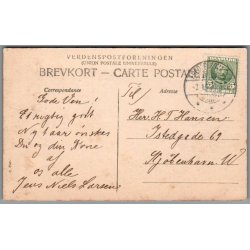 VERDENSPOSTFORENINGEN
(UNION POSTALE UNIVERSELLE)
BREVKORT — CARTE POSTALE
Correspondance
Adresse
Gode Ven!
Et rigtig godt
Nytaar ønskes
Dig og din Kone
af
os alle
Jens Niels Larsen
Til/
Herr H. T. Hansen
Istedgade 69
Kjøbenhavn W
DANMARK